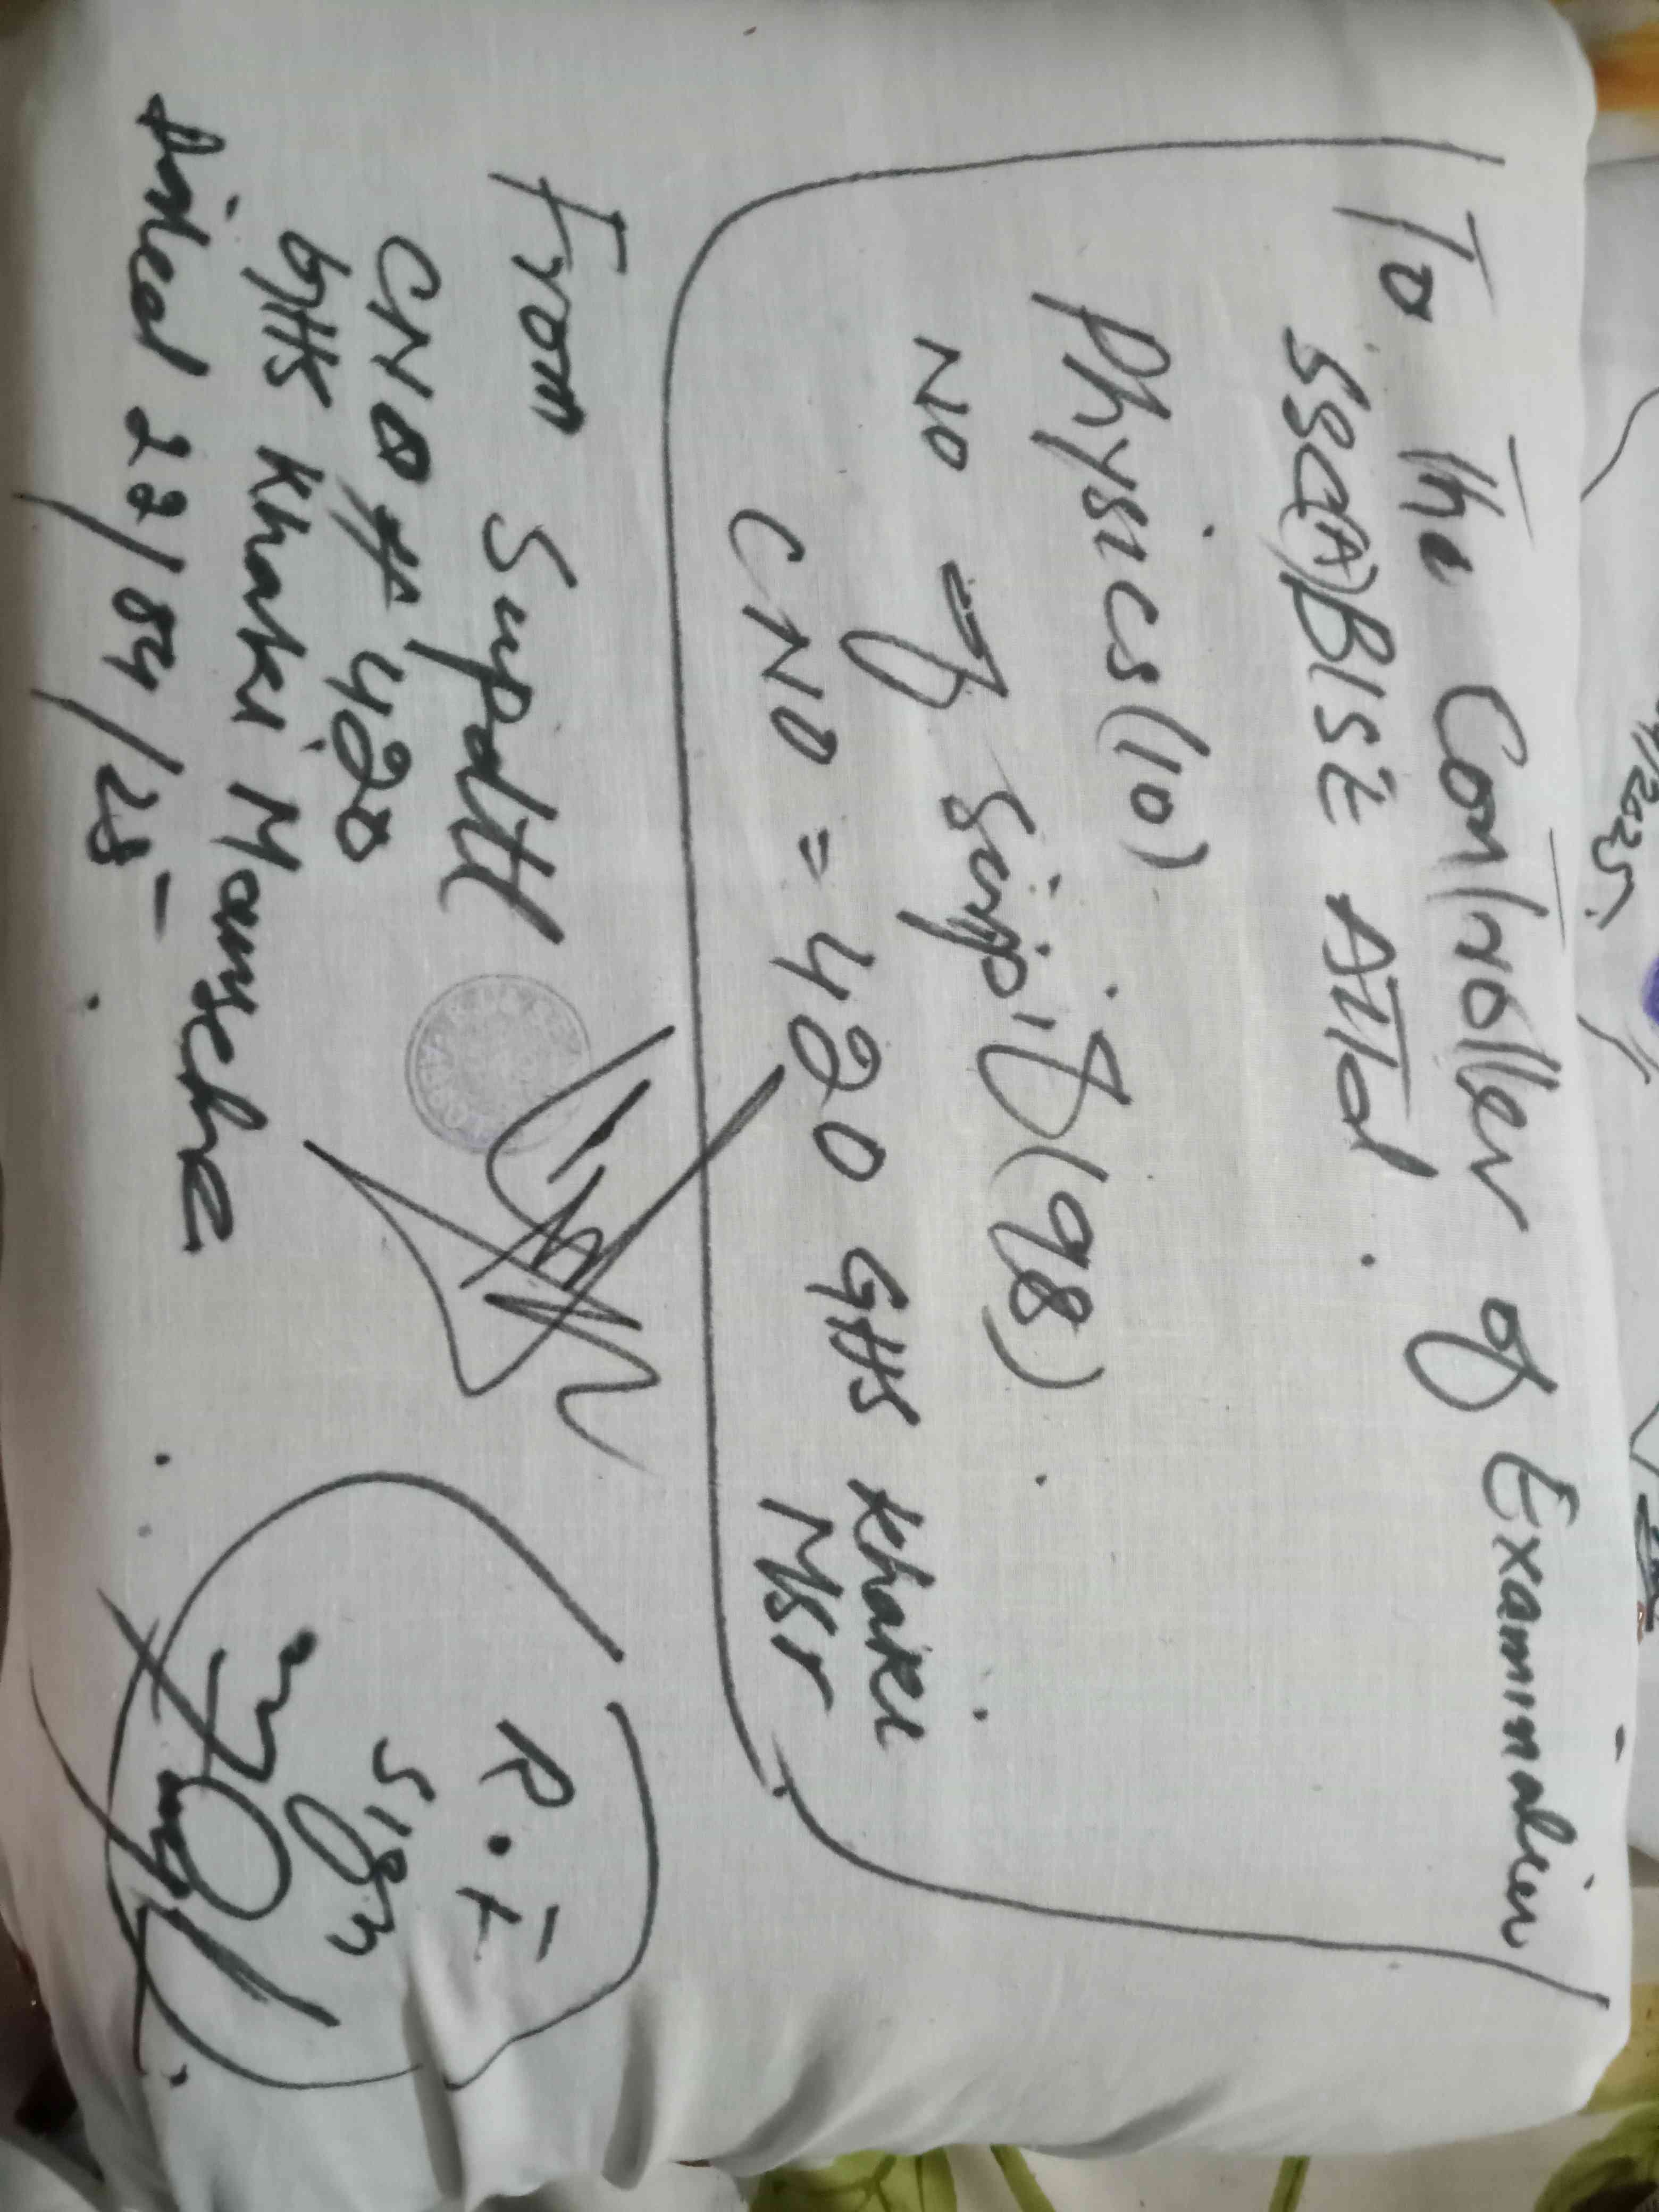 To The Controller of Examination
SSC(A) BISE ATD.
Physics (10)
No of Script (98)
CNO = 420 GHS Khaki
MSr
From Supdtt
CNO 420
GHS Khaki Mansehra
Dated 22/04/25
R.I
Sign
/2025